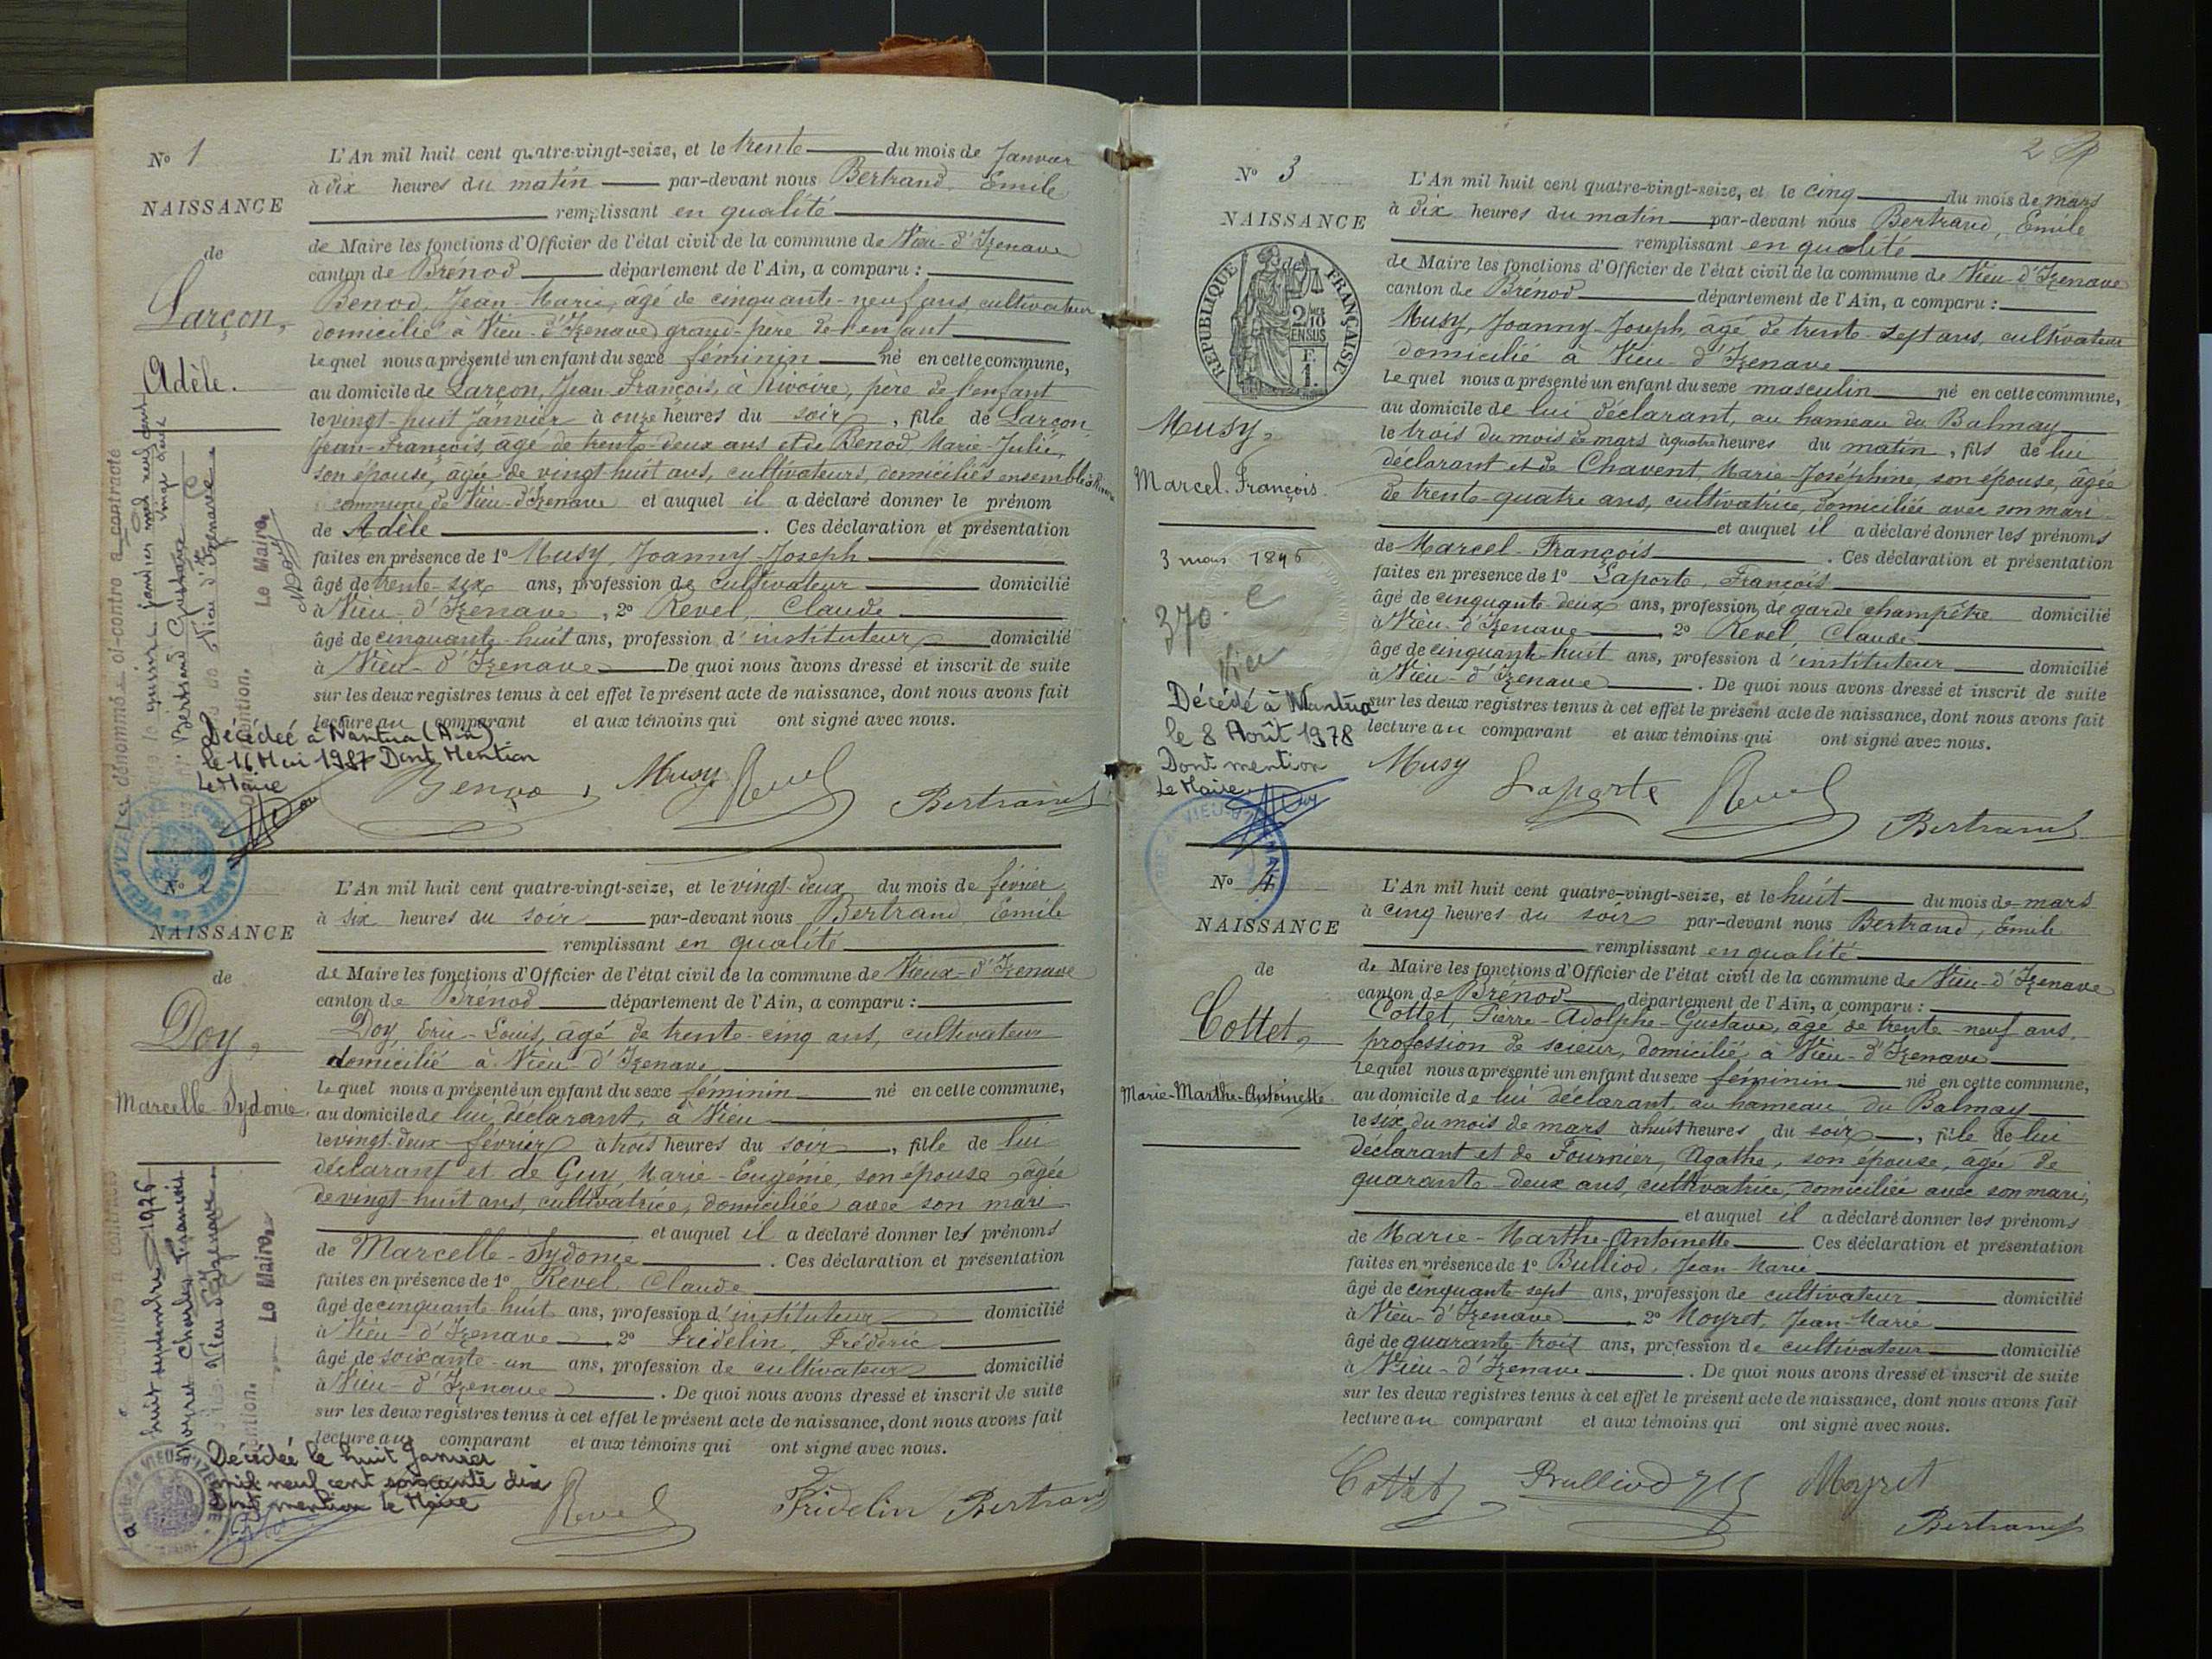 N° 1
NAISSANCE
de
Larçon,
Adèle.
L'An mil huit cent quatre-vingt-seize, et le trente du mois de Janvier
à dix heures du matin par-devant nous Bertrand, Emile
remplissant en qualité
de Maire les fonctions d'Officier de l'état civil de la commune de Vieu-d'Izenave
canton de Brénod département de l'Ain, a comparu :
Benod, Jean-Marie, âgé de cinquante-neuf ans, cultivateur
domicilié à Vieu-d'Izenave grand-père de l'enfant
lequel nous a présenté un enfant du sexe féminin né en cette commune,
au domicile de Larçon, Jean-François, à Rivoire, père de l'enfant
le vingt-huit Janvier à onze heures du soir, fille de Larçon
Jean-François, âgé de trente-deux ans et de Benod, Marie-Julie,
son épouse, âgée de vingt-huit ans, cultivateurs, domiciliés ensemble à
commune de Vieu-d'Izenave et auquel il a déclaré donner le prénom
de Adèle. Ces déclaration et présentation
faites en présence de 1° Musy, Joanny-Joseph
âgé de trente-six ans, profession de cultivateur domicilié
à Vieu-d'Izenave, 2° Revel, Claude
âgé de cinquante-huit ans, profession d'instituteur domicilié
à Vieu-d'Izenave De quoi nous avons dressé et inscrit de suite
sur les deux registres tenus à cet effet le présent acte de naissance, dont nous avons fait
lecture au comparant et aux témoins qui ont signé avec nous.
dénommé ci-contre a contracté
quinze janvier mil neuf cent
vingt deux
Bertrand Gustave
Vieu d'Izenave
mention. Le Maire,
Décédée à Nantua (Ain)
le 16 Mai 1987 Dont Mention
Le Maire
Benod, Musy Revel Bertrand
N°
NAISSANCE
de
Doy,
Marcelle-Sydonie.
L'An mil huit cent quatre-vingt-seize, et le vingt-deux du mois de février
à six heures du soir par-devant nous Bertrand Emile
remplissant en qualité
de Maire les fonctions d'Officier de l'état civil de la commune de Vieux-d'Izenave
canton de Brénod département de l'Ain, a comparu :
Doy Louis, âgé de trente-cinq ans, cultivateur
domicilié à Vieu-d'Izenave
lequel nous a présenté un enfant du sexe féminin né en cette commune,
au domicile de lui déclarant, à Vieu
le vingt-deux février à trois heures du soir, fille de lui
déclarant et de Guy, Marie-Eugénie, son épouse âgée
de vingt-huit ans, cultivatrice, domiciliée avec son mari
et auquel il a déclaré donner les prénoms
de Marcelle-Sydonie. Ces déclaration et présentation
faites en présence de 1° Revel, Claude
âgé de cinquante-huit ans, profession d'instituteur domicilié
à Vieu-d'Izenave 2° Fridelin, Frédéric
âgé de soixante-un ans, profession de cultivateur domicilié
à Vieu-d'Izenave. De quoi nous avons dressé et inscrit de suite
sur les deux registres tenus à cet effet le présent acte de naissance, dont nous avons fait
lecture au comparant et aux témoins qui ont signé avec nous.
huit septembre 1926
Moyret Charles François
Vieu d'Izenave
mention. Le Maire,
Décédée le huit Janvier
mil neuf cent soixante dix
Dont mention le Maire
Revel Fridelin Bertrand
2
N° 3
NAISSANCE
de
RÉPUBLIQUE FRANÇAISE
2/10 EN SUS
F.
1.
Musy,
Marcel-François.
L'An mil huit cent quatre-vingt-seize, et le cinq du mois de mars
à dix heures du matin par-devant nous Bertrand, Emile
remplissant en qualité
de Maire les fonctions d'Officier de l'état civil de la commune de Vieu-d'Izenave
canton de Brénod département de l'Ain, a comparu :
Musy, Joanny-Joseph, âgé de trente-sept ans, cultivateur
domicilié à Vieu-d'Izenave
lequel nous a présenté un enfant du sexe masculin né en cette commune,
au domicile de lui déclarant, au hameau du Balmay
le trois du mois de mars à quatre heures du matin, fils de lui
déclarant et de Chavent, Marie-Joséphine, son épouse, âgée
de trente-quatre ans, cultivatrice, domiciliée avec son mari
et auquel il a déclaré donner les prénoms
de Marcel-François. Ces déclaration et présentation
faites en présence de 1° Laporte, François
âgé de cinquante-deux ans, profession de garde champêtre domicilié
à Vieu-d'Izenave, 2° Revel, Claude
âgé de cinquante-huit ans, profession d'instituteur domicilié
à Vieu-d'Izenave. De quoi nous avons dressé et inscrit de suite
sur les deux registres tenus à cet effet le présent acte de naissance, dont nous avons fait
lecture au comparant et aux témoins qui ont signé avec nous.
3 mars 1896
370
Décédé à Nantua
le 8 Août 1978
Dont mention
Le Maire,
Musy Laporte Revel
Bertrand
N° 4
NAISSANCE
de
Cottet,
Marie-Marthe-Antoinette.
L'An mil huit cent quatre-vingt-seize, et le huit du mois de mars
à cinq heures du soir par-devant nous Bertrand, Emile
remplissant en qualité
de Maire les fonctions d'Officier de l'état civil de la commune de Vieu-d'Izenave
canton de Brénod département de l'Ain, a comparu :
Cottet, Pierre-Adolphe-Gustave, âgé de trente-neuf ans,
profession de scieur, domicilié à Vieu-d'Izenave
lequel nous a présenté un enfant du sexe féminin né en cette commune,
au domicile de lui déclarant, au hameau du Balmay
le six du mois de mars à huit heures du soir, fille de lui
déclarant et de Fournier, Agathe, son épouse, âgée de
quarante-deux ans, cultivatrice, domiciliée avec son mari,
et auquel il a déclaré donner les prénoms
de Marie-Marthe-Antoinette Ces déclaration et présentation
faites en présence de 1° Bulliod, Jean-Marie
âgé de cinquante-sept ans, profession de cultivateur domicilié
à Vieu-d'Izenave, 2° Moyret, Jean-Marie
âgé de quarante-trois ans, profession de cultivateur domicilié
à Vieu-d'Izenave. De quoi nous avons dressé et inscrit de suite
sur les deux registres tenus à cet effet le présent acte de naissance, dont nous avons fait
lecture au comparant et aux témoins qui ont signé avec nous.
Cottet Bulliod Moyret
Bertrand